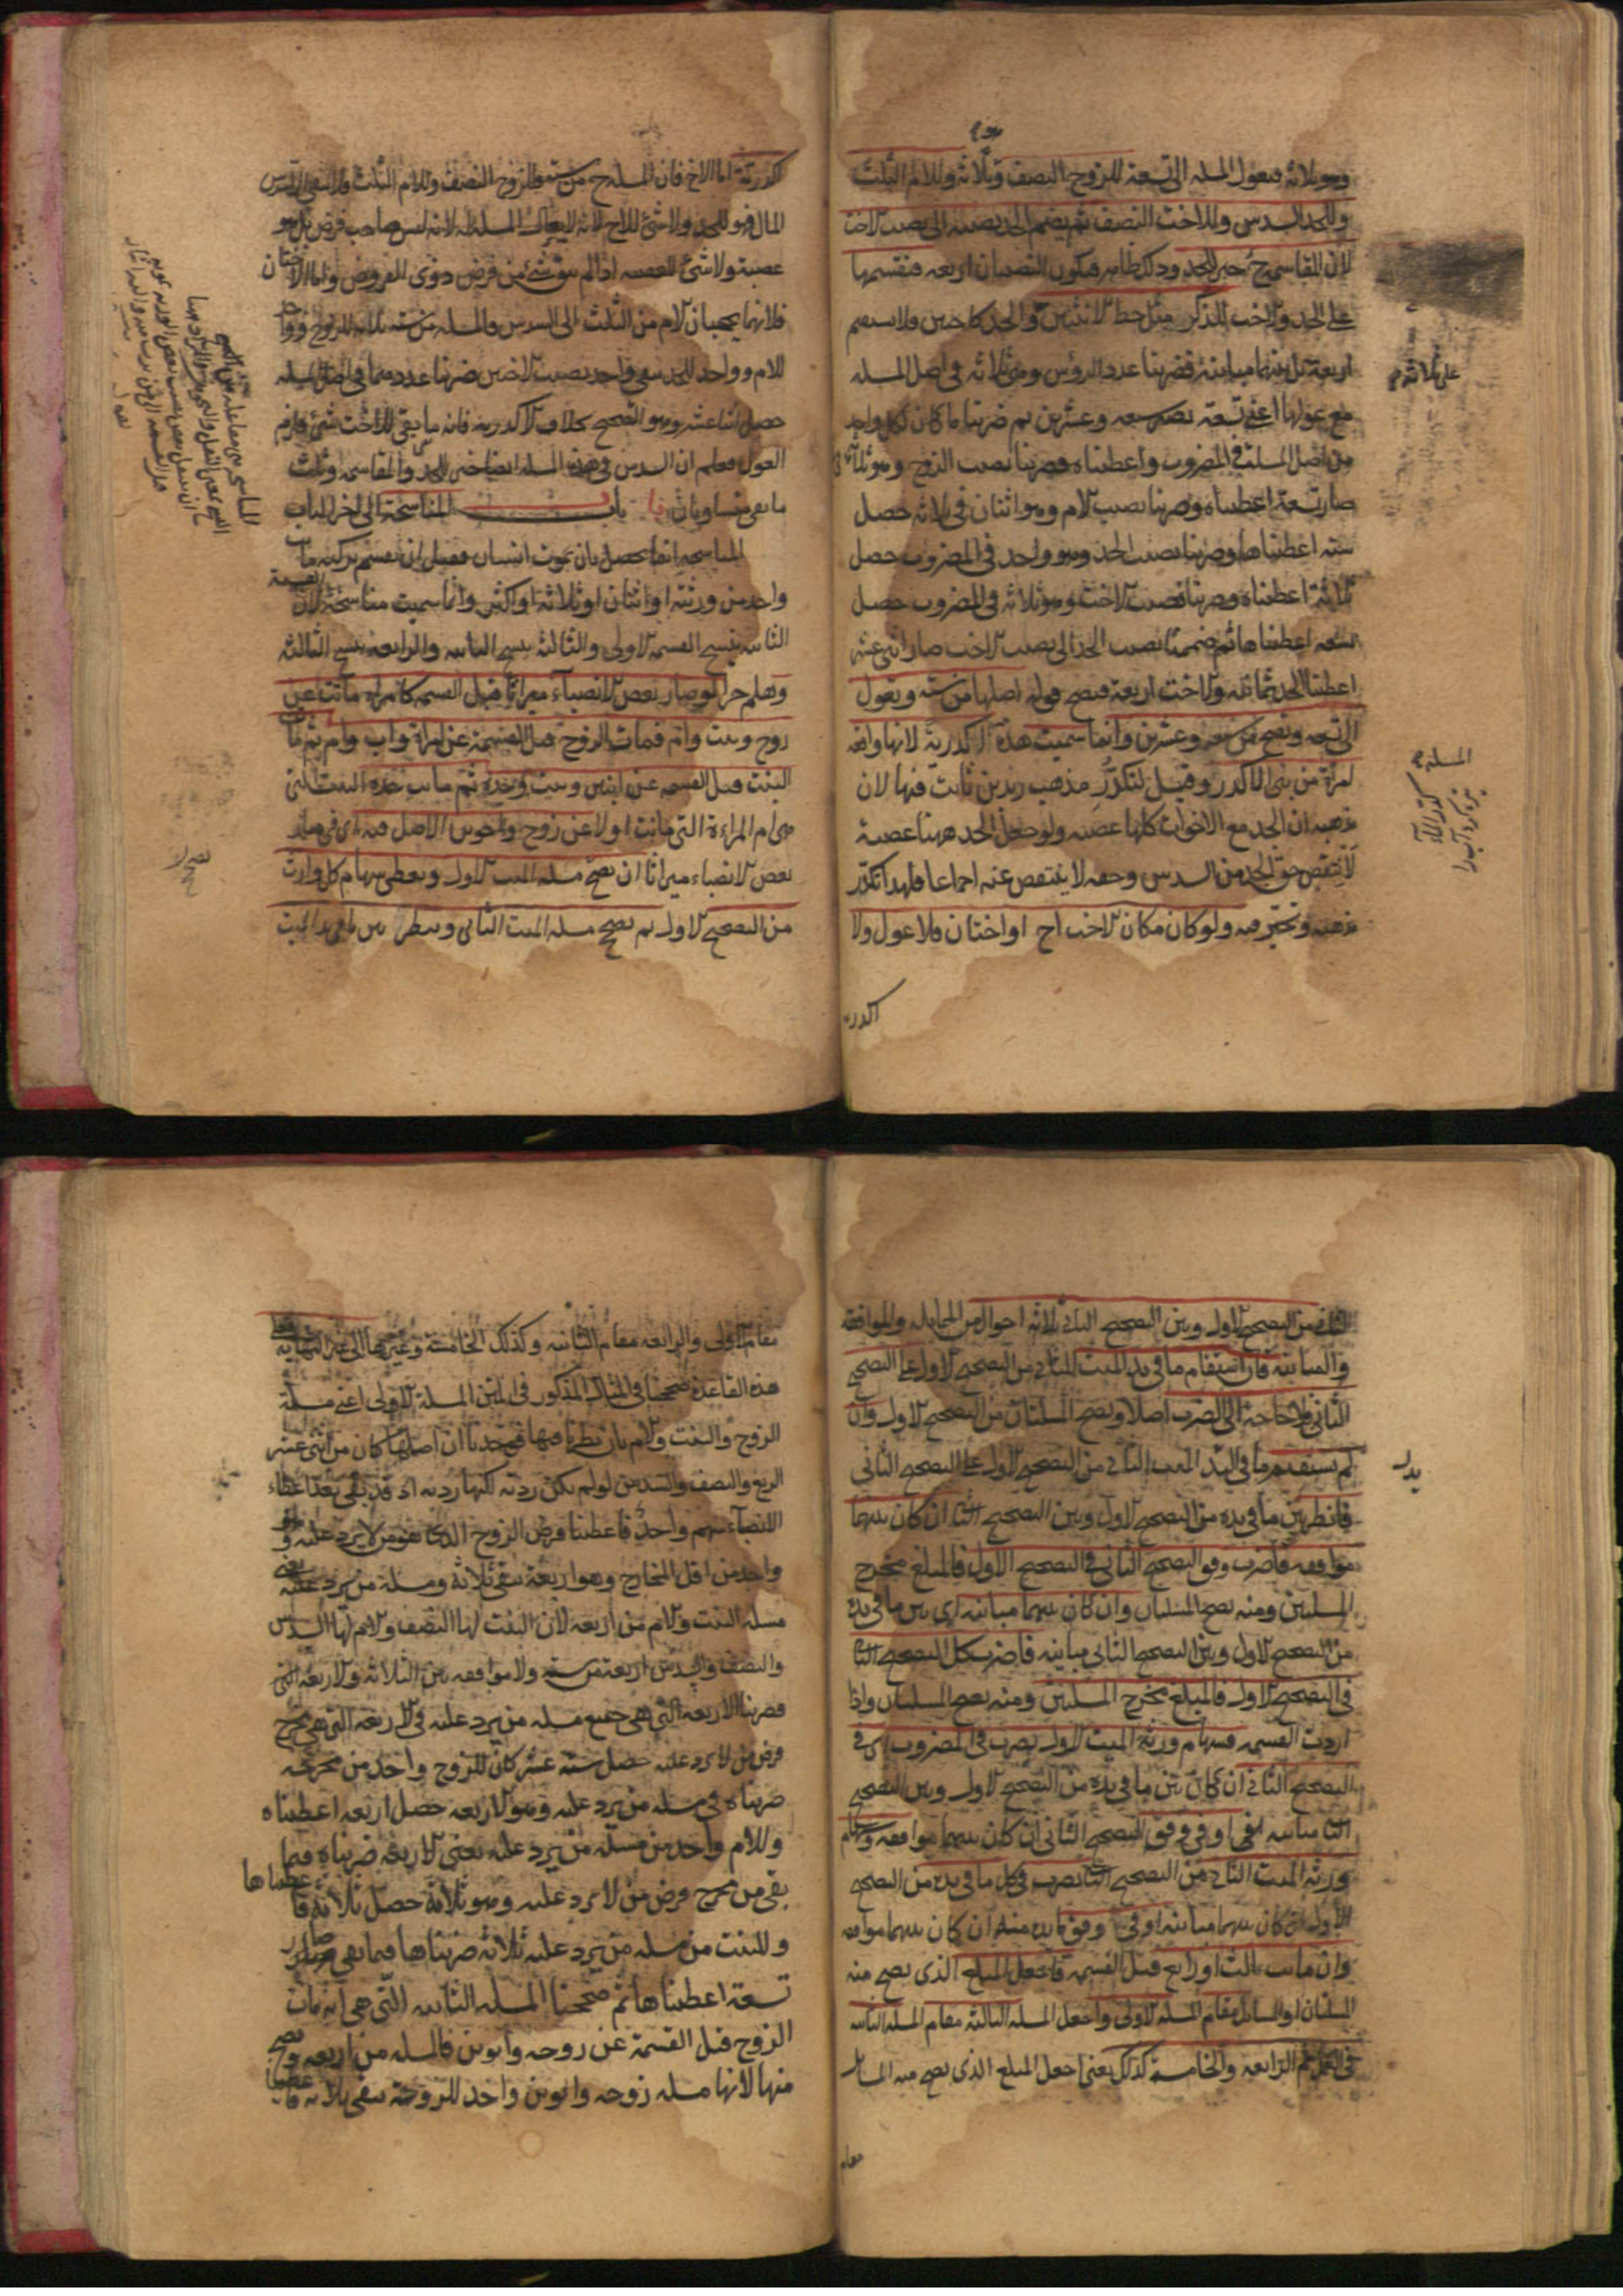 وهو ثلاثة فيعول المسلة الى تسعة للزوج النصف وثلاثة وللام الثلث
وللجد السدس وللاخت النصف ثم يضم الجد نصيبه الى نصيب الاخت
لان المقاسمة خير للجد وذلك ظاهر فيكون النصيبان اربعة فنقسمها
على الجد والاخت للذكر مثل حظ الانثيين والجد كاخين ولا يستقيم
اربعة بل بينهما مباينة فضربنا عدد الرؤس وهو ثلاثة فى اصل المسلة
على ثلاثة
مع عولها اعنى تسعة يصير سبعة وعشرين ثم ضربنا ما كان لكل واحد
من اصل المسلة فى المضروب واعطيناه فضربنا نصيب الزوج وهو ثلاثة فى
صار تسعة اعطيناه وضربنا نصيب الام وهو اثنان فى ثلاثة حصل
ستة اعطيناها وضربنا نصيب الجد وهو واحد فى المضروب حصل
ثلاثة اعطيناه وضربنا نصيب الاخت وهو ثلاثة فى المضروب حصل
تسعة اعطيناها ثم ضممنا نصيب الجد الى نصيب الاخت صار اثنى عشر
اعطينا الجد ثمانية والاخت اربعة فيصح قوله اصلها من ستة وتعول
الى تسعة وتصح من سبعة وعشرين وانما سميت هذه اكدرية لانها واقعة
امراة من بنى الاكدر وقيل لتكدر مذهب زيد بن ثابت فيها لان
مذهبه ان الجد مع الاخوات كلها عصبة ولو جعل الجد ههنا عصبة
لانتقص حق الجد من السدس وحقه لا ينتقص عنه اجماعا فلهذا تكدر
مذهبه وتحير فيه ولو كان مكان الاخت اخ او اختان فلا عول ولا
اكدرية
اكدرية اما الاخ فان المسلة ح من ستة للزوج النصف وللام الثلث فلم يبق الا سدس
المال فهو للجد ولا شئ للاخ لانه لا يعول المسلة له لانه ليس صاحب فرض بل هو
عصبة ولا شئ للعصبة اذا لم يبق شئ من فرض ذوى الفروض واما الاختان
فلانهما يحجبان الام من الثلث الى السدس فالمسلة من ستة ثلاثة للزوج وواحد
للام وواحد للجد بقى واحد نصيب الاختين ضربنا عددهما فى اصل المسلة
حصل اثنا عشر وهو التصحيح بخلاف الاكدرية فانه ما بقى للاخت شئ فلزم
العول فعلم ان السدس فى هذه المسلة ايضا خير للجد والمقاسمة وثلث
ما بقى متساويان باب المناسخة الى اخر الباب
المناسخة انما يحصل بان يموت انسان فقبل ان يقسم تركته مات
واحد من ورثته او اثنان او ثلاثة او اكثر وانما سميت مناسخة لان القسمة
الثانية ينسخ القسمة الاولى والثالثة ينسخ الثانية والرابعة ينسخ الثالثة
وهلم جرا لو صار بعض الانصباء ميراثا قبل القسمة كامراة ماتت عن
زوج وبنت وام فمات الزوج قبل القسمة عن امراة واب وام ثم ماتت
البنت قبل القسمة عن ابنين وبنت وجدة ثم ماتت جدة البنت التى
هى ام المراءة التى ماتت اولا عن زوج واخوين الاصل فيه اى فى صار
بعض الانصباء ميراثا ان تصح مسلة الميت الاول وتعطى سهام كل وارث
من التصحيح الاول ثم تصح مسلة الميت الثانى وتنظر بين ما فى يد الميت
الثانى من التصحيح الاول وبين التصحيح الثانى ثلاثة احوال من المماثلة والموافقة
والمباينة فان استقام ما فى يد الميت الثانى من التصحيح الاول على التصحيح
الثانى فلا حاجة الى الضرب اصلا وتصح المسلتان من التصحيح الاول وان
لم يستقم ما فى اليد الميت الثانى من التصحيح الاول على التصحيح الثانى
فانظر بين ما فى يده من التصحيح الاول وبين التصحيح الثانى ان كان بينهما
موافقة فاضرب وفق التصحيح الثانى فى التصحيح الاول فالمبلغ مخرج
المسلتين ومنه تصح المسلتان وان كان بينهما مباينة اى بين ما فى يده
من التصحيح الاول وبين التصحيح الثانى مباينة فاضرب كل التصحيح الثانى
فى التصحيح الاول فالمبلغ مخرج المسلتين ومنه تصح المسلتان واذا
اردت القسمة فسهام ورثة الميت الاول يضرب فى المضروب اى فى
التصحيح الثانى ان كان بين ما فى يده من التصحيح الاول وبين التصحيح
الثانى مباينة او فى وفق التصحيح الثانى ان كان بينهما موافقة وسهام
ورثة الميت الثانى من التصحيح الثانى يضرب فى كل ما فى يده من التصحيح
الاول ان كان بينهما مباينة او فى وفق ما فى يده منه ان كان بينهما موافقة
وان مات ثالث او رابع قبل القسمة فاجعل المبلغ الذى يصح منه
المسلتان او المسائل مقام المسلة الاولى واجعل المسلة الثالثة مقام المسلة الثانية
فى العمل ثم الرابعة والخامسة كذلك يعنى اجعل المبلغ الذى يصح منه المسائل
مقام
مقام الاولى والرابعة مقام الثانية وكذلك الخامسة وغيرها الى غير النهاية
هذه القاعدة صححنا فى المثال المذكور فى المتن المسلة الاولى اعنى مسلة
الزوج والبنت والام بان نظرنا فيها فوجدنا ان اصلها كان من اثنى عشر
الربع والنصف والسدس لو لم يكن ردية لكنها ردية اذ قد بقى بعد اعطاء
الانصباء سهم واحد فاعطينا فرض الزوج الذى هو من لا يرد عليه وهو
واحد من اقل المخارج وهو اربعة بقى ثلاثة ومسلة من يرد عليه يعنى
مسلة البنت والام من اربعة لان البنت لها النصف والام لها السدس
والنصف والسدس اربعة من ستة ولا موافقة بين الثلاثة والاربعة التى
فضربنا الاربعة التى هى جميع مسلة من يرد عليه فى الاربعة التى هى مخرج
فرض من لا يرد عليه حصل ستة عشر كان للزوج واحد من مخرجه
ضربناه فى مسلة من يرد عليه وهو الاربعة حصل اربعة اعطيناه
وللام واحد من مسلة من يرد عليه يعنى الاربعة ضربناه فيما
بقى من مخرج فرض من لا يرد عليه وهو ثلاثة حصل ثلاثة فاعطيناها
وللبنت من مسلة من يرد عليه ثلاثة ضربناها فيما بقى صار
تسعة اعطيناها ثم صححنا المسلة الثانية التى هى انه مات
الزوج قبل القسمة عن زوجة وابوين فالمسلة من اربعة وتصح
منها لانها مسلة زوجة وابوين واحد للزوجة بقى ثلاثة فاعطينا